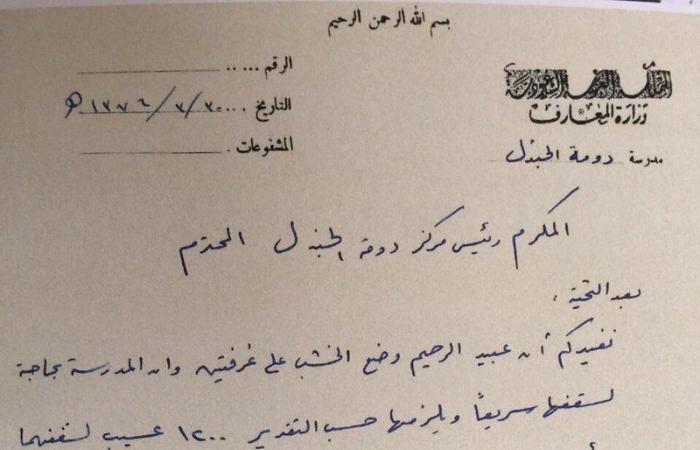 بسم الله الرحمن الرحيم
المملكة العربية السعودية
وزارة المعارف
مدرسة دومة الجندل
الرقم .....
التاريخ .... ٣٠/٣/١٣٧٦ﻫ
المشفوعات .
المكرم رئيس مركز دومة الجندل المحترم
بعد التحية .
نفيدكم أن عبيد الرحيم وضع الخشب على غرفتين وان المدرسة بحاجة
لسقفها سريعاً ويلزمها حسب التقدير ١٢٠٠ عسيب لسقفهما